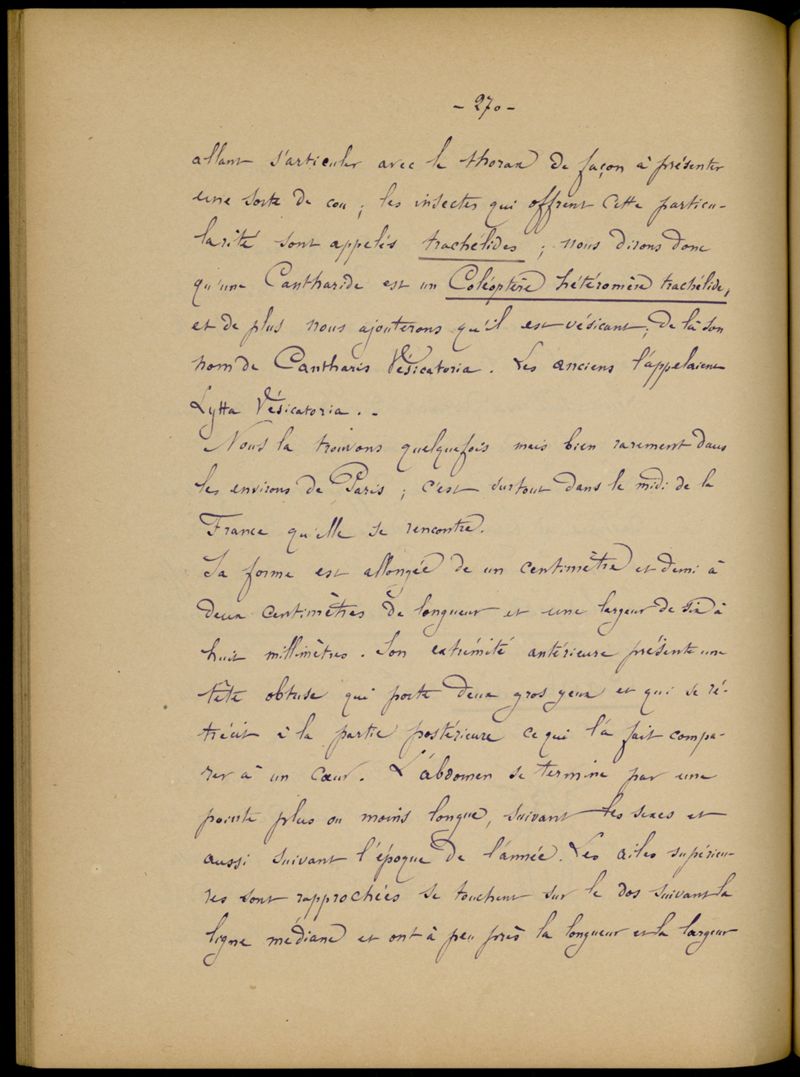 - 270 -
allant s'articuler avec le thorax de façon à présenter
une sorte de cou ; les insectes qui offrent cette particu-
larité sont appelés trachélides ; nous dirons donc
qu'une Cantharide est un Coléoptère hétéromère trachélide,
et de plus nous ajouterons qu'il est vésicant ; de là son
nom de Cantharis Vésicatoria . Les anciens l'appelaient
Lytta Vésicatoria . -
Nous la trouvons quelquefois mais bien rarement dans
les environs de Paris ; c'est surtout dans le midi de la
France qu'elle se rencontre.
Sa forme est allongée de un centimètre et demi à
deux centimètres de longueur et une largeur de six à
huit millimètres . Son extrémité antérieure présente une
tête obtuse qui porte deux gros yeux et qui se ré-
trécit à la partie postérieure ce qui l'a fait compa-
rer à un cœur. L'abdomen se termine par une
pointe plus ou moins longue, suivant les sexes et
aussi suivant l'époque de l'année. Les ailes supérieu-
res sont rapprochées se touchent sur le dos suivant la
ligne médiane et ont à peu près la longueur et la largeur